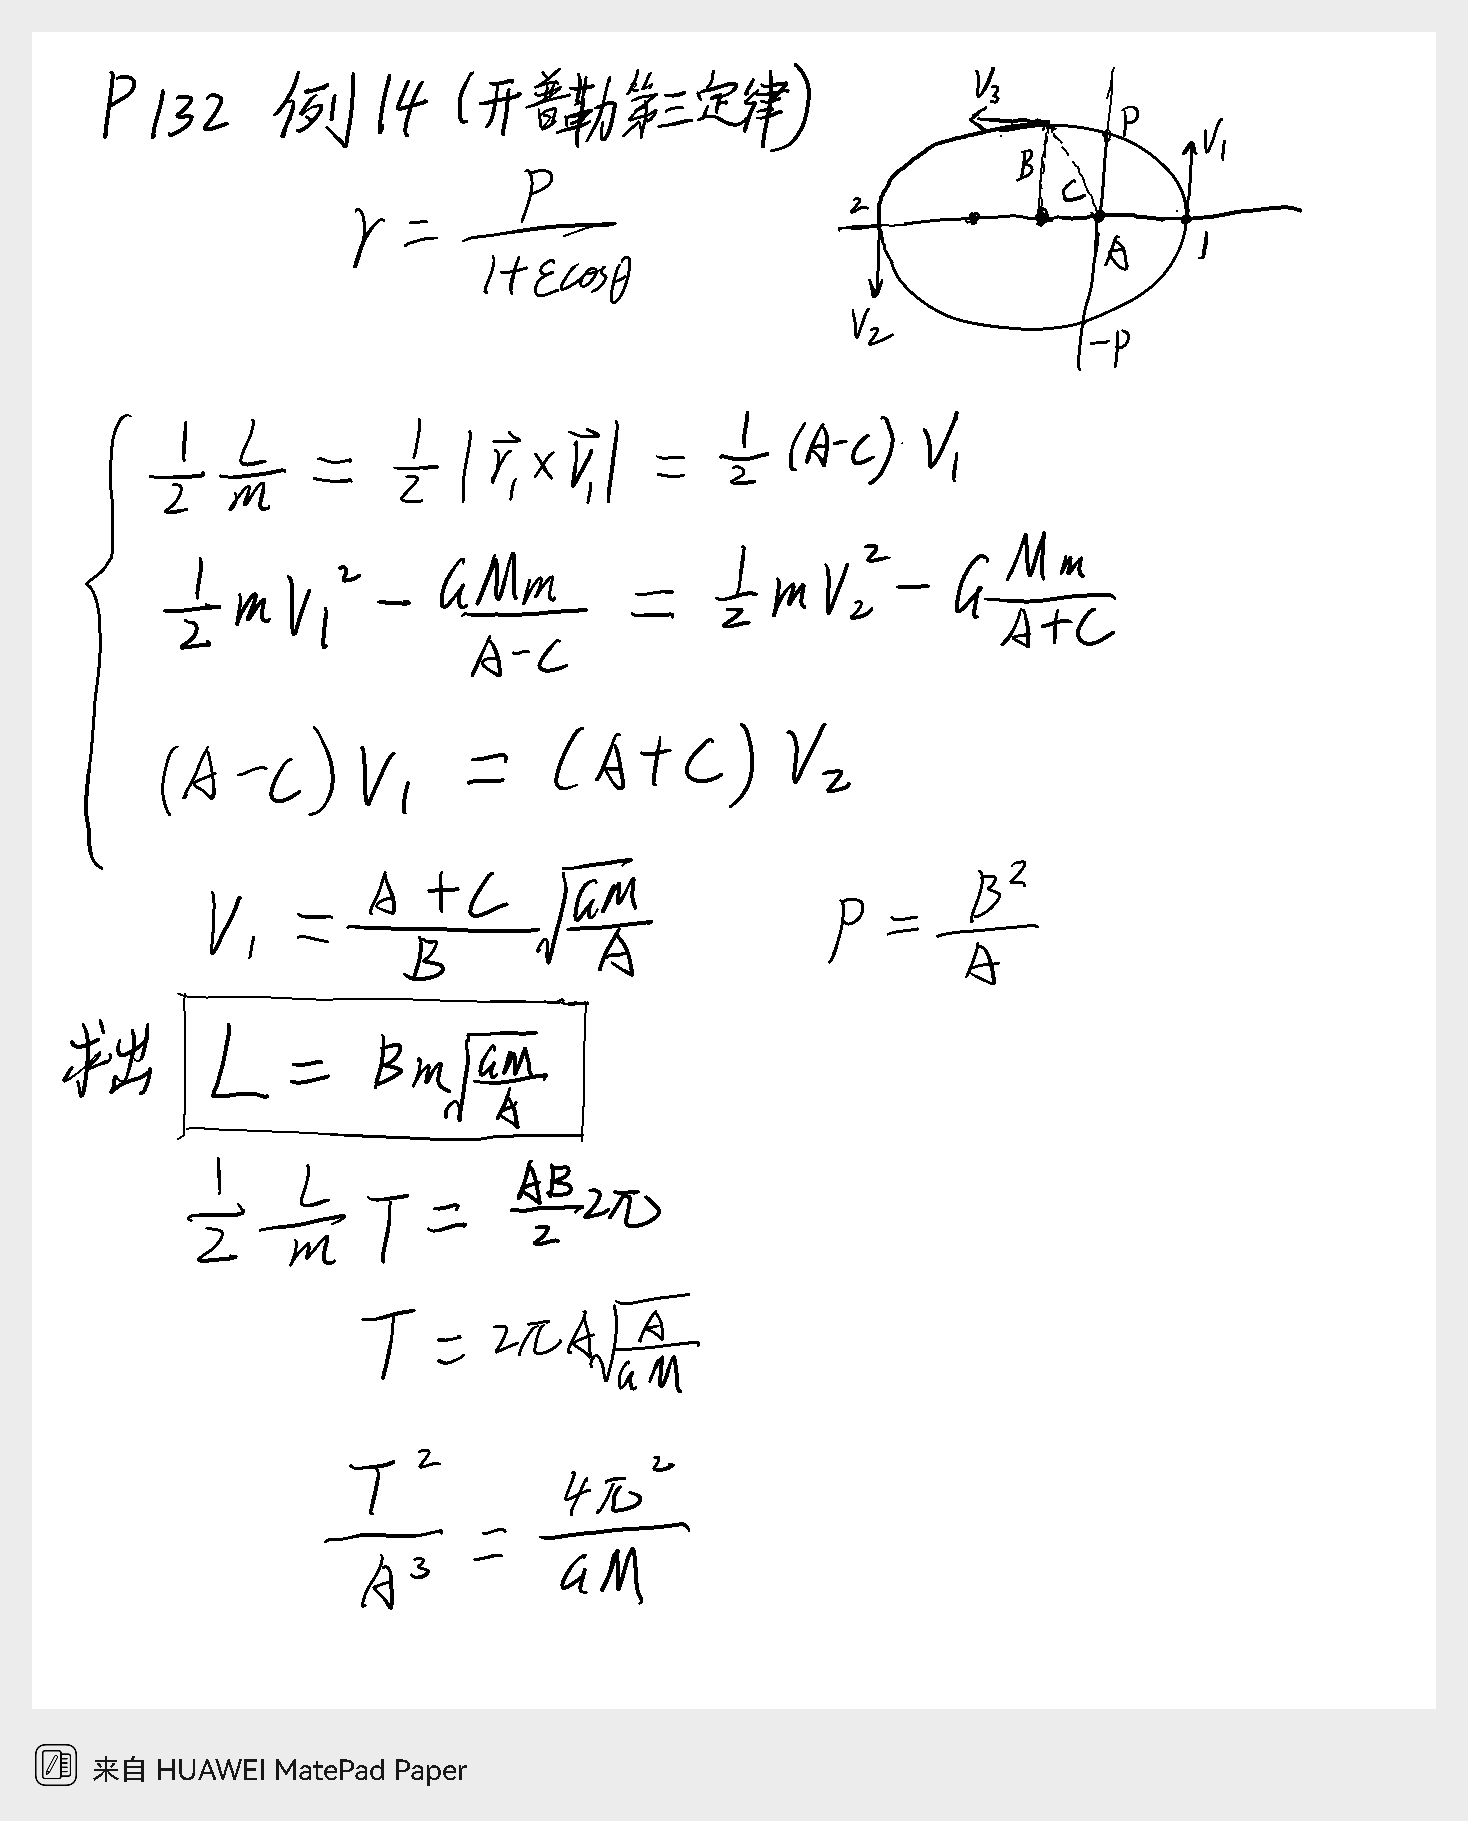 P132 例14 (开普勒第三定律)
r = P / (1+εcosθ)
V₃
P
B
C
V₁
2
A
1
V₂
-P
1/2 L/m = 1/2 |r⃗₁ × V⃗₁| = 1/2 (A-C)·V₁
1/2 mV₁² - GMm/(A-C) = 1/2 mV₂² - G Mm/(A+C)
(A-C)V₁ = (A+C)V₂
V₁ = (A+C)/B √(GM/A)    P = B²/A
求出 L = Bm√(GM/A)
1/2 L/m T = AB/2 2π
T = 2πA√(A/GM)
T²/A³ = 4π²/GM
来自 HUAWEI MatePad Paper